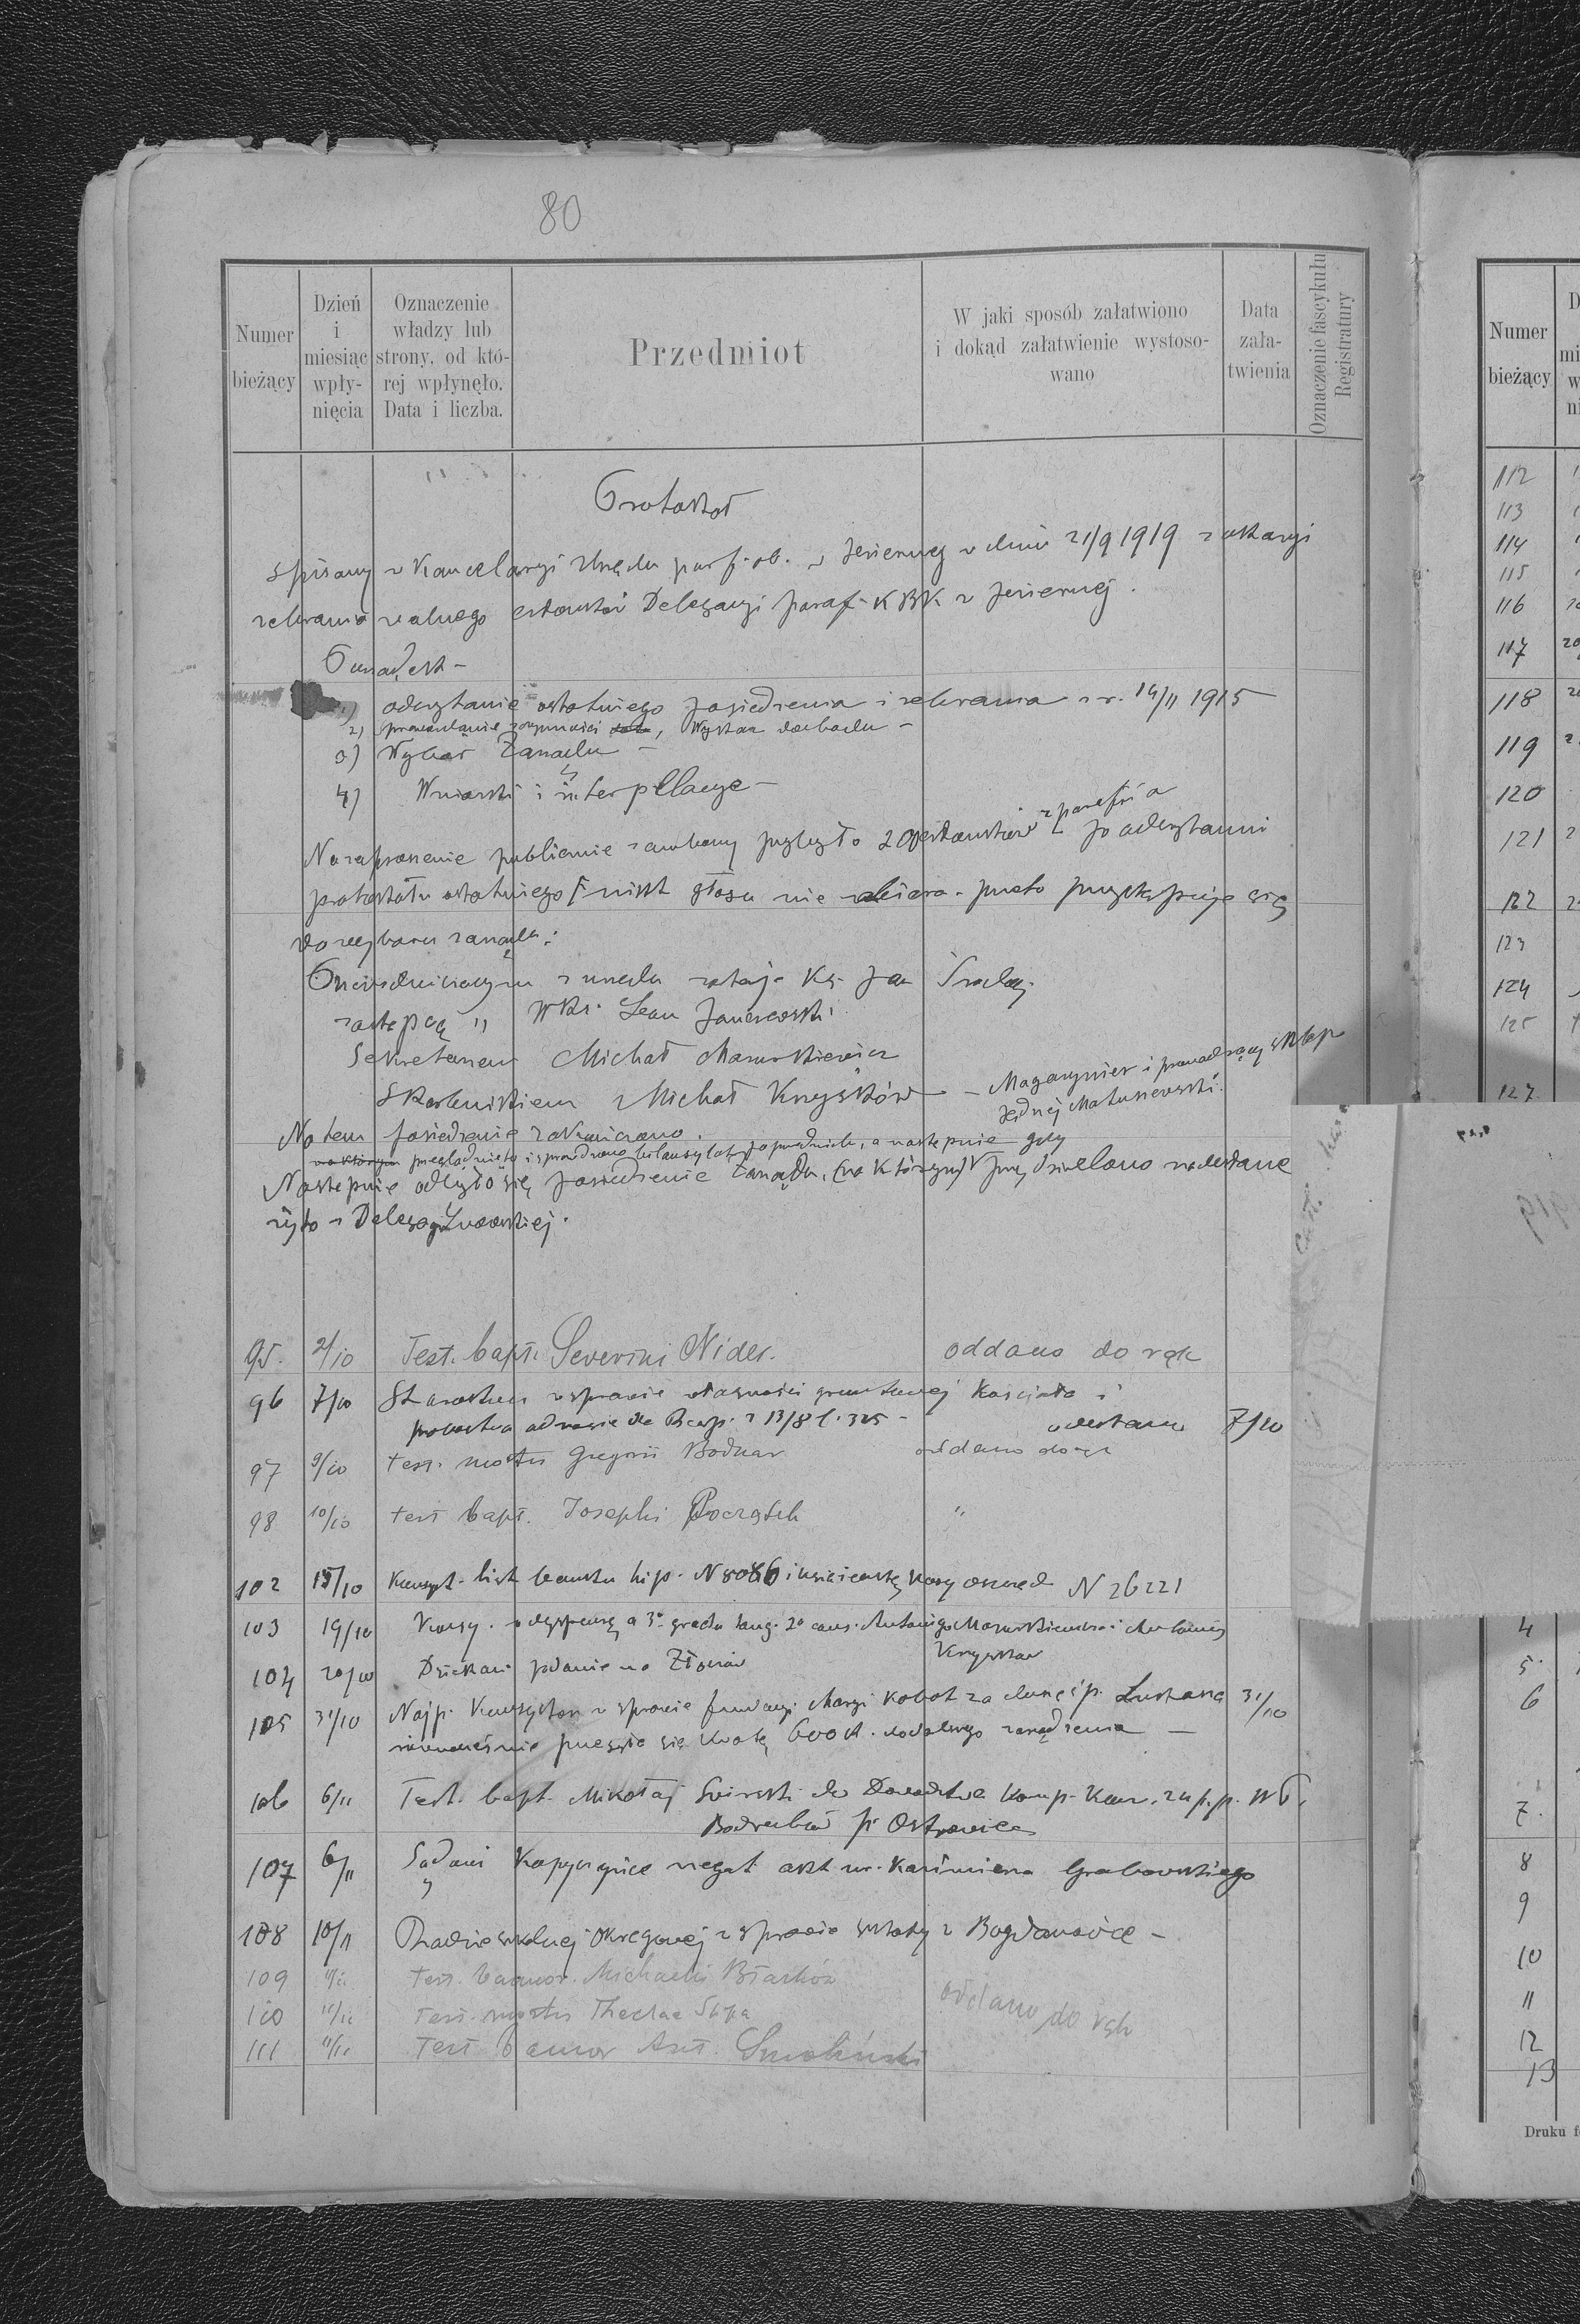 80
Numer bieżący
Dzień i miesiąc wpły- nięcia
Oznaczenie władzy lub strony, od któ- rej wpłynęło. Data i liczba.
Przedmiot
W jaki sposób załatwiono i dokąd załatwienie wystoso- wano
Data zała- twienia
Oznaczenie fascykułu Registratury
Protokół
spisany w Kancelaryi Urzędu par. ob. w Jeziernej w dniu 21/9 1919 z okazyi
zebrania walnego członków Delegacyi paraf. KBK w Jeziernej.
Porządek -
1) odczytanie ostatniego posiedzenia i zebrania z r. 14/11 1915
2) sprawozdanie z czynności, Wykaz dochodu -
3) Wybór Zarządu -
4) Wnioski i interpelacye -
Na zaproszenie publicznie z ambony przybyło 20 członków z parafii a po odczytaniu
protokołu ostatniego i nikt głosu nie zabiera - przeto przystępuje się
do wyboru zarządu:
Przewodniczącym z urzędu zostaje Ks. Jan
zastępcą " WKs. Leon Janczewski
Sekretarzem Michał Mazurkiewicz
Skarbnikiem Michał Krzyśków - Magazynier i prowadzący sklep
Jędrzej Matusiewski.
Na tem posiedzenie zakończono.
przeglądnięto i sprawdzono bilansy lat poprzednich, a następnie gdy
Następnie odbyło się posiedzenie Zarządu, (na którym) nadesłane
żyto z Delegacyi Lwowskiej.
95. 2/10 Test. bapt. Severini Nider. oddano do rąk
96 7/10 Starostwu w sprawie własności gruntowej Kościoła i
probostwa odnośnie do Rozp. z 13/8 l. 325 - odesłano 7/10
97 9/10 test. mortis Gregorii Bodnar oddano do rąk
98 10/10 test bapt. Josephi Początek "
102 15/10 Konsyst. list banku hip. N 8086 i książeczkę kasy oszczęd N 26221
103 19/10 Konsy. o dyspensę a 3º gradu sang. 2º cons. Antoniego Mazurkiewicza i Antoniny
Krzyśków
104 20/10 Dziekani podanie na Złoczów
105 31/10 Najp. Konsystorz w sprawie fundacyi Maryi Kobot za duszę śp. Łukasza 31/10
równocześnie przesyła się kwotę 600 K. do dalszego zarządzenia -
106 6/11 Test. bapt. Mikołaj Świrski do Dowództwa Komp. p.p. W P.
107 6/11 Sądowi Kopyczyńce negat. akt ur. Kazimierza Grabowskiego
108 10/11 Radzie szkolnej Okręgowej w sprawie szkoły w Bogdanówce -
109 11/11 test. Michaelis Błaszków
110 11/11 Test. mortis Theclae oddano do rąk
111 11/11 Test Ant. Smoliński
Numer bieżący
112
113
114
115
116
117
118
119
120
121
122
123
124
125
127.
4
5
6
7.
8
9
10
11
12
13
Druku